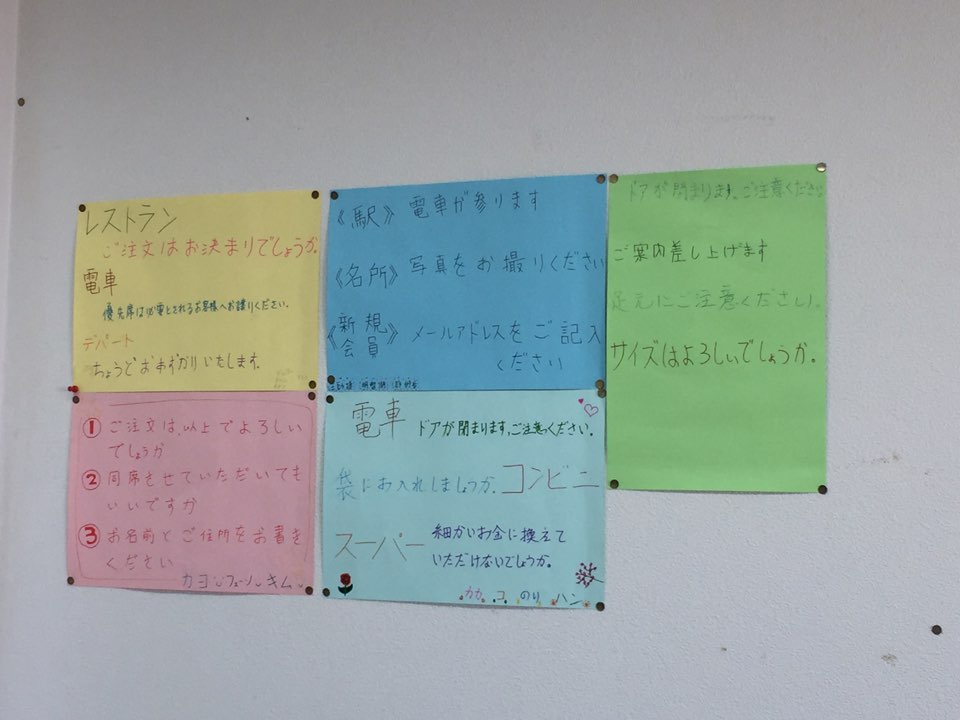 レストラン
ご注文はお決まりでしょうか。
電車
優先席は必要とされるお客様へお譲りください。
デパート
ちょうどおあずかりいたします。
《駅》 電車が参ります
《名所》 写真をお撮りください
《新規会員》 メールアドレスをご記入
ください
ドアが閉まります。ご注意ください
ご案内差し上げます
足元にご注意ください。
サイズはよろしいでしょうか。
① ご注文は、以上でよろしい
でしょうか
② 同席させていただいても
いいですか
③ お名前とご住所をお書き
ください
カヨ フェーン キム
電車 ドアが閉まります,ご注意っください.
袋にお入れしましょうか. コンビニ
スーパー 細かいお金に換えて
いただけないでしょうか.
カカ. コ のり ハン